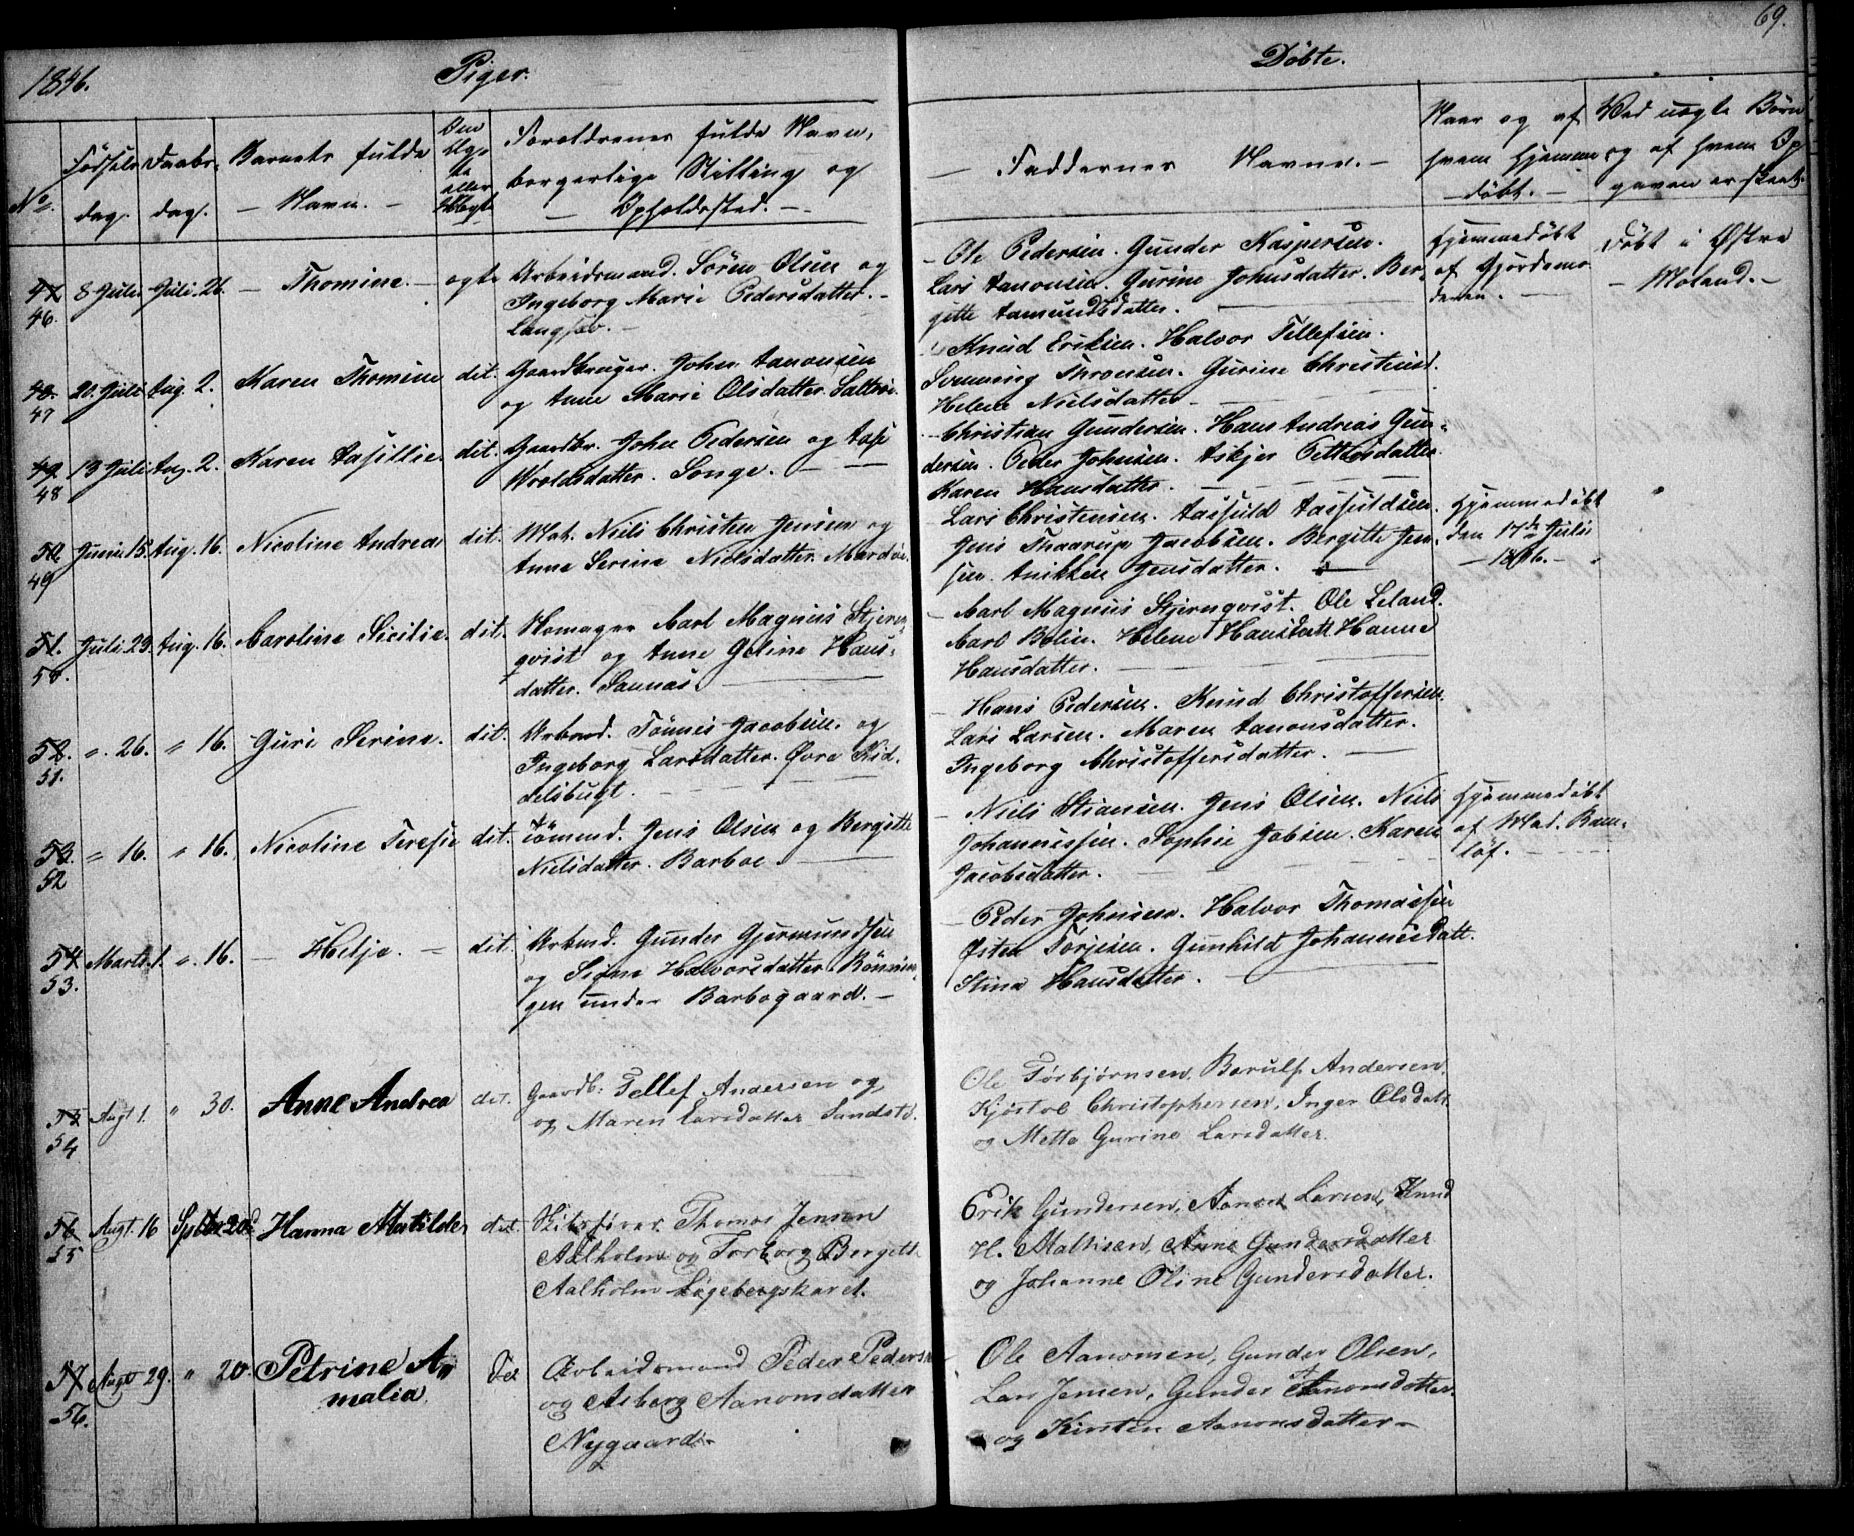 1846.
Piger.
Døbte.
69.
No.
Fødsels-
dag.
Daabs-
dag.
Barnets fulde
- Navn. -
Om
Ægte
eller
Uægte
Forældrenes fulde Navn,
borgerlige Stilling og
- Opholdssted. -
- Faddernes Navne. -
Naar og af
hvem hjemme
- døbt. -
Ved uægte Børn
og af hvem Op
gaven er skeet.
47
46.
8 Juli
Juli 26.
- Thomine. -
ægte
Arbeidsmand. Sören Olsen og
Ingeborg Marie Pedersdatter. -
Langsæv. -
- Ole Pedersen. Gunder Kaspersen.
Lars Aanonsen. Gurine Johnsdatter. Ber-
gitte Aamundsdatter.
Hjemmedøbt
af Gjordemo
deren. -
Døbt i Østre
- Moland. -
48
47
20. Juli
Aug. 2.
Karen Thomine
dit.
Gaardbruger. John Aanonsen
og Anne Marie Olsdatter. Saltrø.
Knud Eriksen. Halvor Tellefsen.
Svenning Thronsen. Gurine Christensd.
Helene Nielsdatter. -
49
48
13 Juli
Aug. 2.
Karen Aasillie.
dit.
Gaardbr. John Pedersen og Aase
Wroldsdatter. Songe. -
- Christian Gundersen. Hans Andreas Gun-
dersen. Peder Johnsen. Askjer Pettersdatter.
Karen Hansdatter. -
50
49
Junii 15.
Aug. 16.
Nicoline Andrea
dit.
Mat. Niels Christen Jensen og
Anne Serine Nielsdatter. Mardøe.
Lars Christensen. Aasuld Aasuldsen.
Jens Thaarup Jacobsen. Bergitte Jen-
sen. Anikken Jensdatter. -
Hjemmedøbt
den 17de Julii
- 1846. -
51.
50.
Juli 23.
Aug. 16.
Caroline Sicilie.
dit.
Skomager Carl Magnus Stjern-
qvist og Anne Geline Hans-
datter. Sannæs. -
- Carl Magnus Stjernqvist. Ole Leland.
Carl Bolin. Helene Hansdatt. Hanne
Hansdatter. -
52.
51.
". 26.
" 16.
Guri Serine.
dit.
Arbmd. Tönnes Jacobsen. og
Ingeborg Larsdatter. Øvre Kid-
delsbugt. -
- Hans Pedersen. Knud Christoffersen.
Lars Larsen. Maren Aanonsdatter.
Ingeborg Christoffersdatter. -
53.
52
" 16.
" 16.
Nicoline Teresie
dit.
Tömmd. Jens Olsen og Bergitte
Nielsdatter. Barboe. -
- Niels Stiansen. Jens Olsen. Niels
Johannessen. Sophie Jobsen. Karen
Jacobsdatter. -
Hjemmedøbt
af Mad. Ram-
løf. -
54
53.
Marts 1.
". 16.
- Hilje. -
dit.
Arbmd. Gunder Gjermundsen
og Signe Halvorsdatter. Rønnin-
gen under Barbogaard. -
- Peder Johnsen. Halvor Thomassen
Østen Torjesen. Gunhild Johannesdatt.
Stina Hansdatter. -
54
Augt 1.
" 30.
Anne Andrea
det.
Gaardb. Tellef Andersen og
og Maren Larsdatter Sandstø.
Ole Torbjørnsen, Berulf Andersen,
Kjøstol Christophersen, Inger Olsdatt.
og Mette Gurine Larsdatter.
56
55
Augt. 16
Sptbr 20d
Hanna Matilde
det.
Skibsfører Thomas Jensen
Aalholm og Torborg Bergett
Aalholm Løgebergskaret.
Erik Gundersen, Aanon Larsen, Knud
H. Mathisen, Anne Gundersdatter
og Johanne Oline Gundersdatter.
57
56.
Augt 29.
" 20.
Petrine A-
malia.
Det
Arbeidsmand Peder Peders
og Asberg Aanonsdatter
Nygaard.
Ole Aanonsen, Gunder Olsen,
Lars Jensen, Gunder Aanonsdatter
og Kirsten Aanonsdatter -